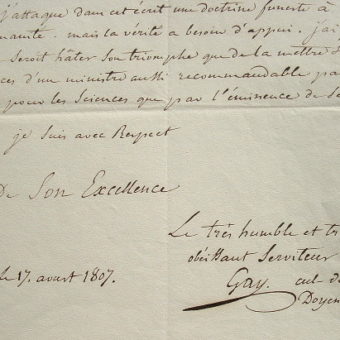 j'attaque dans cet écrit une doctrine funeste à
mais la vérité a besoin d'appui. j'ai
Seroit hâter son triomphe que de la mettre S
d'un ministre aussi recommandable pa
pour les Sciences que par l'éminence de Se
je suis avec Respect
De Son Excellence
Le très humble et tr
obéissant Serviteur
le 17. aoust 1807.
Gay. cul de
Doyen